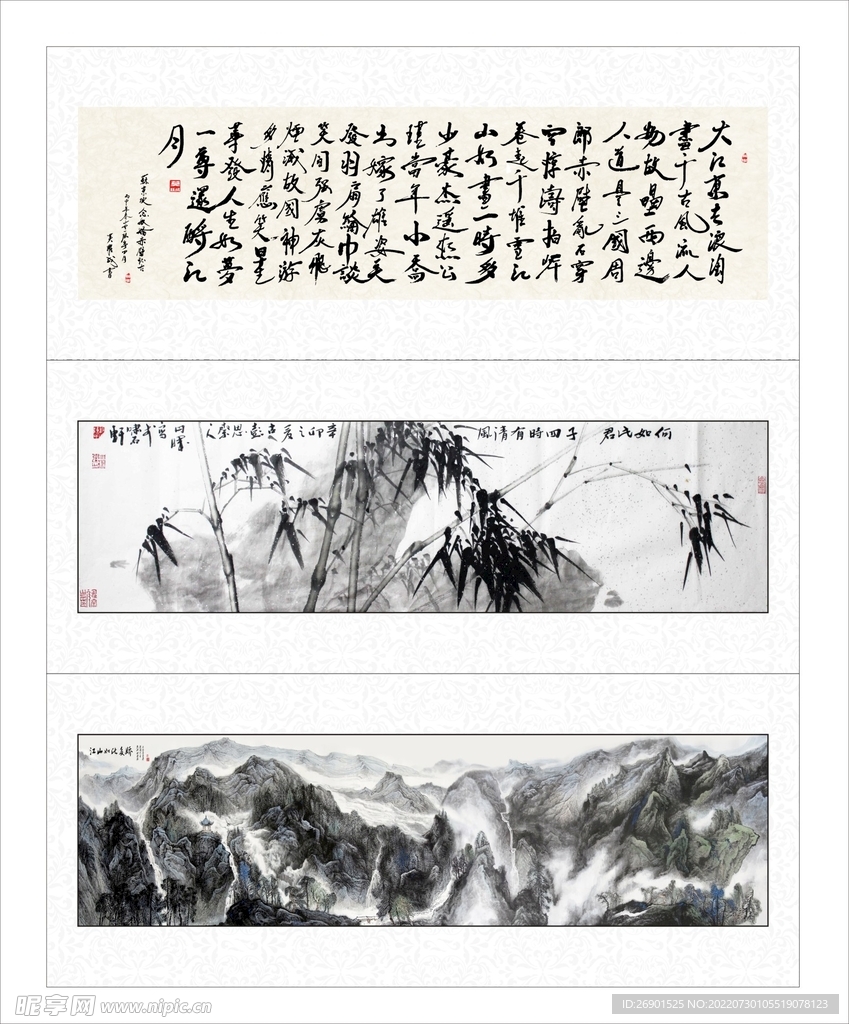 大江東去浪淘
盡千古風流人
物故壘西邊
人道是三國周
郎赤壁亂石穿
空驚濤拍岸
卷起千堆雪江
山如畫一時多
少豪傑遙想公
瑾當年小喬
出嫁了雄姿英
發羽扇綸巾談
笑間強虜灰飛
煙滅故國神游
多情應笑
發人生如夢
一尊還酹江
月
蘇東坡念奴嬌赤壁懷古
何如此君子四時有清風
辛卯之
江山如此多嬌
昵享网 www.nipic.cn
ID:26901525 NO:20220730105519078123